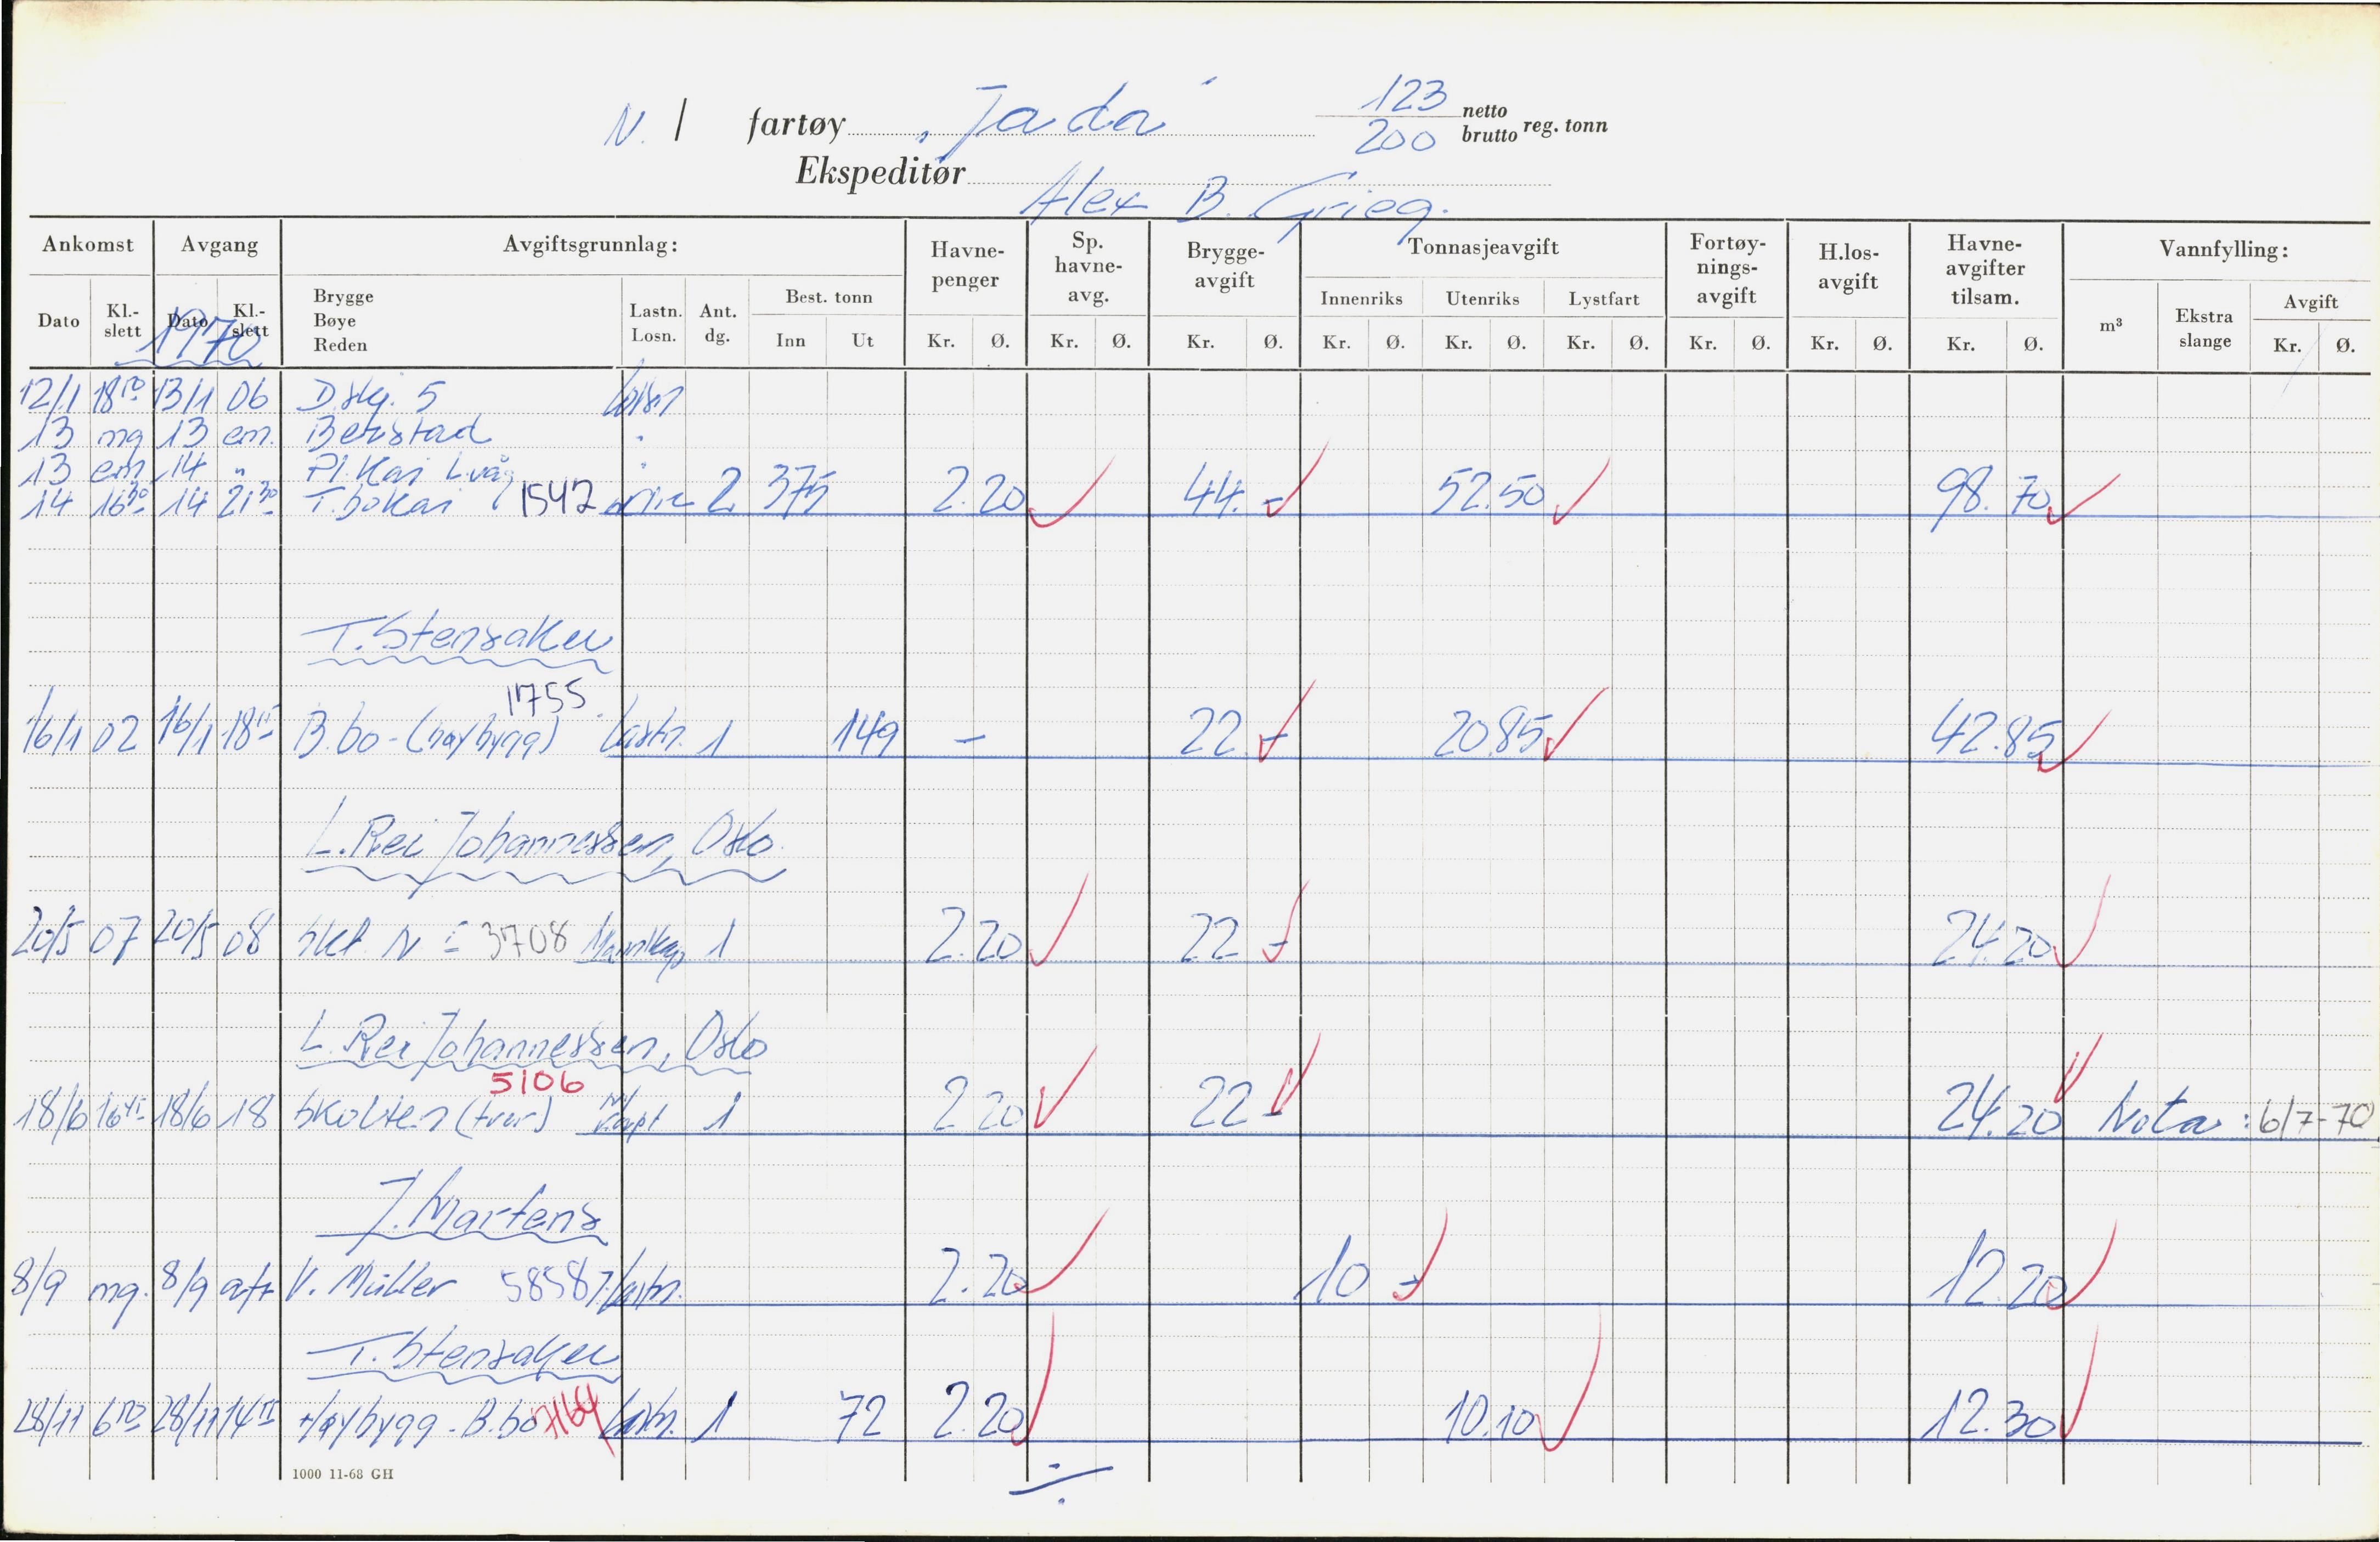 N. / fartøy „Jada" 123 netto
200 brutto reg. tonn
Ekspeditør Alex B. Grieg.
Ankomst Avgang Avgiftsgrunnlag: Havne-penger Sp. havne-avg. Brygge-avgift Tonnasjeavgift Fortøy-nings-avgift H.los-avgift Havne-avgifter tilsam. Vannfylling:
Dato Kl.-slett Dato Kl.-slett Brygge Bøye Reden Lastn. Losn. Ant. dg. Best. tonn Innenriks Utenriks Lystfart m³ Ekstra slange Avgift
Inn Ut Kr. Ø. Kr. Ø. Kr. Ø. Kr. Ø. Kr. Ø. Kr. Ø. Kr. Ø. Kr. Ø. Kr. Ø. Kr. Ø.
1970
12/1 18 13/1 06 D.skj. 5 Lossn
13 mg 13 em. Bekstad "
13 em 14 " Pl. Kai L.våg "
14 16³⁰ 14 21³⁰ T.bokai 1542 2 375 2.20 44.- 52.50 98.70
T. Stensaker
1755
16/1 02 16/1 18 B.bo-(høybygg) Lastn. 1 149 - 22.- 20.85 42.85
L. Rei Johannessen, Oslo
20/5 07 20/5 08 Skt. N 3708 1 2.20 22 - 24.20
L. Rei Johannessen, Oslo
5106
18/6 16⁴⁵ 18/6 18 Skolten (tver) 1 2 20 22 - 24.20 Nota: 6/7-70
J. Martens
8/9 mg. 8/9 aft V. Müller 5858 Lastn. 2.20 10 - 12.20
T. Stensaker
28/11 6 28/11 14 Høybygg - B.bo 7164 Lastn. 1 72 2.20 10.10 12.30
1000 11-68 GH